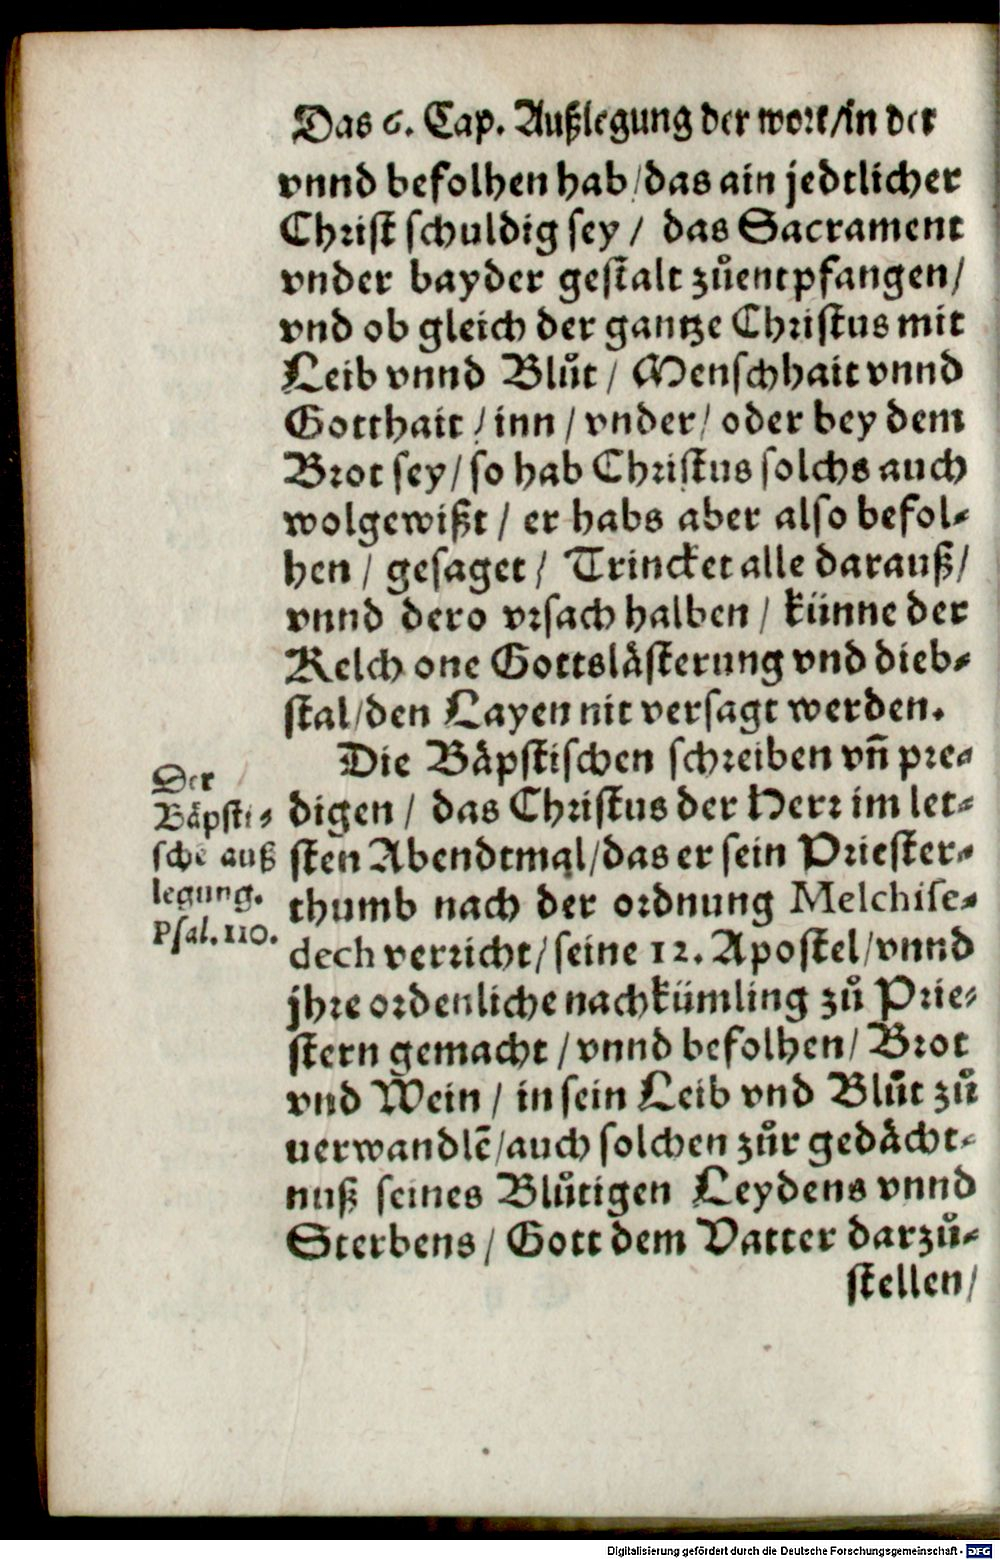 Das 6. Cap. Außlegung der wort/in der
vnnd befolhen hab/das ain jedtlicher
Christ schuldig sey / das Sacrament
vnder bayder gestalt zůentpfangen/
vnd ob gleich der gantze Christus mit
Leib vnnd Blůt / Menschhait vnnd
Gotthait / inn / vnder / oder bey dem
Brot sey / so hab Christus solchs auch
wolgewißt / er habs aber also befol⸗
hen / gesaget / Trincket alle darauß/
vnnd dero vrsach halben / künne der
Kelch one Gottslästerung vnd dieb⸗
stal/den Layen nit versagt werden.
Die Bäpstischen schreiben vñ pre⸗
digen / das Christus der Herr im let⸗
sten Abendtmal/das er sein Priester⸗
thumb nach der ordnung Melchise⸗
dech verricht/seine 12. Apostel/vnnd
jhre ordenliche nachkümling zů Prie⸗
stern gemacht / vnnd befolhen/ Brot
vnd Wein / in sein Leib vnd Blůt zů
uerwandlē/auch solchen zůr gedächt⸗
nuß seines Blůtigen Leydens vnnd
Sterbens / Gott dem Vatter darzů⸗
stellen/
Der
Bäpsti⸗
sche auß
legung.
Psal. 110.
Digitalisierung gefördert durch die Deutsche Forschungsgemeinschaft - DFG